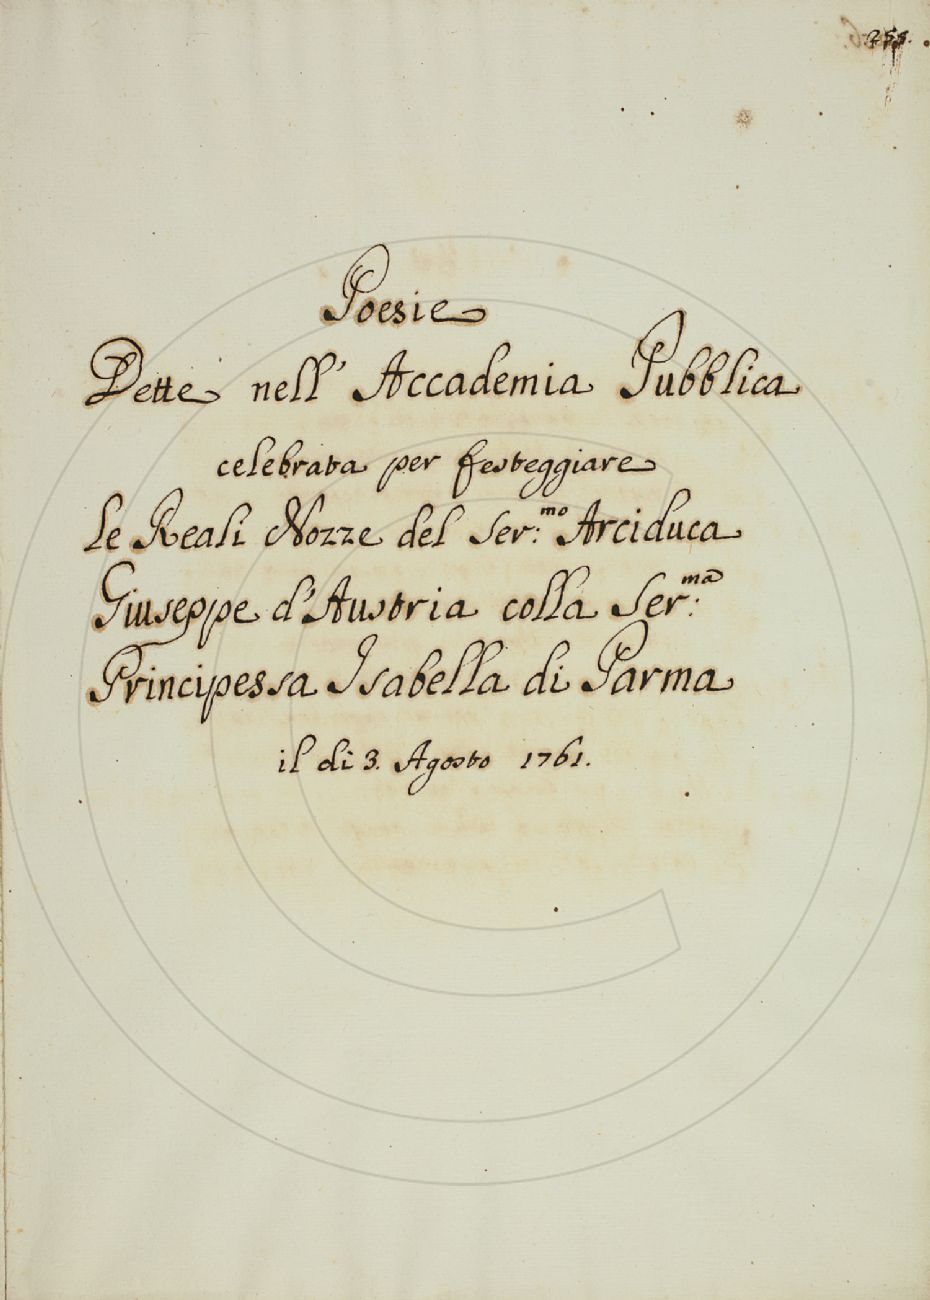 255.
Poesie
Dette nell' Accademia Pubblica
celebrata per festeggiare
le Reali Nozze del Ser:mo Arciduca
Giuseppe d'Austria colla Ser:ma
Principessa Isabella di Parma
il dì 3. Agosto 1761.